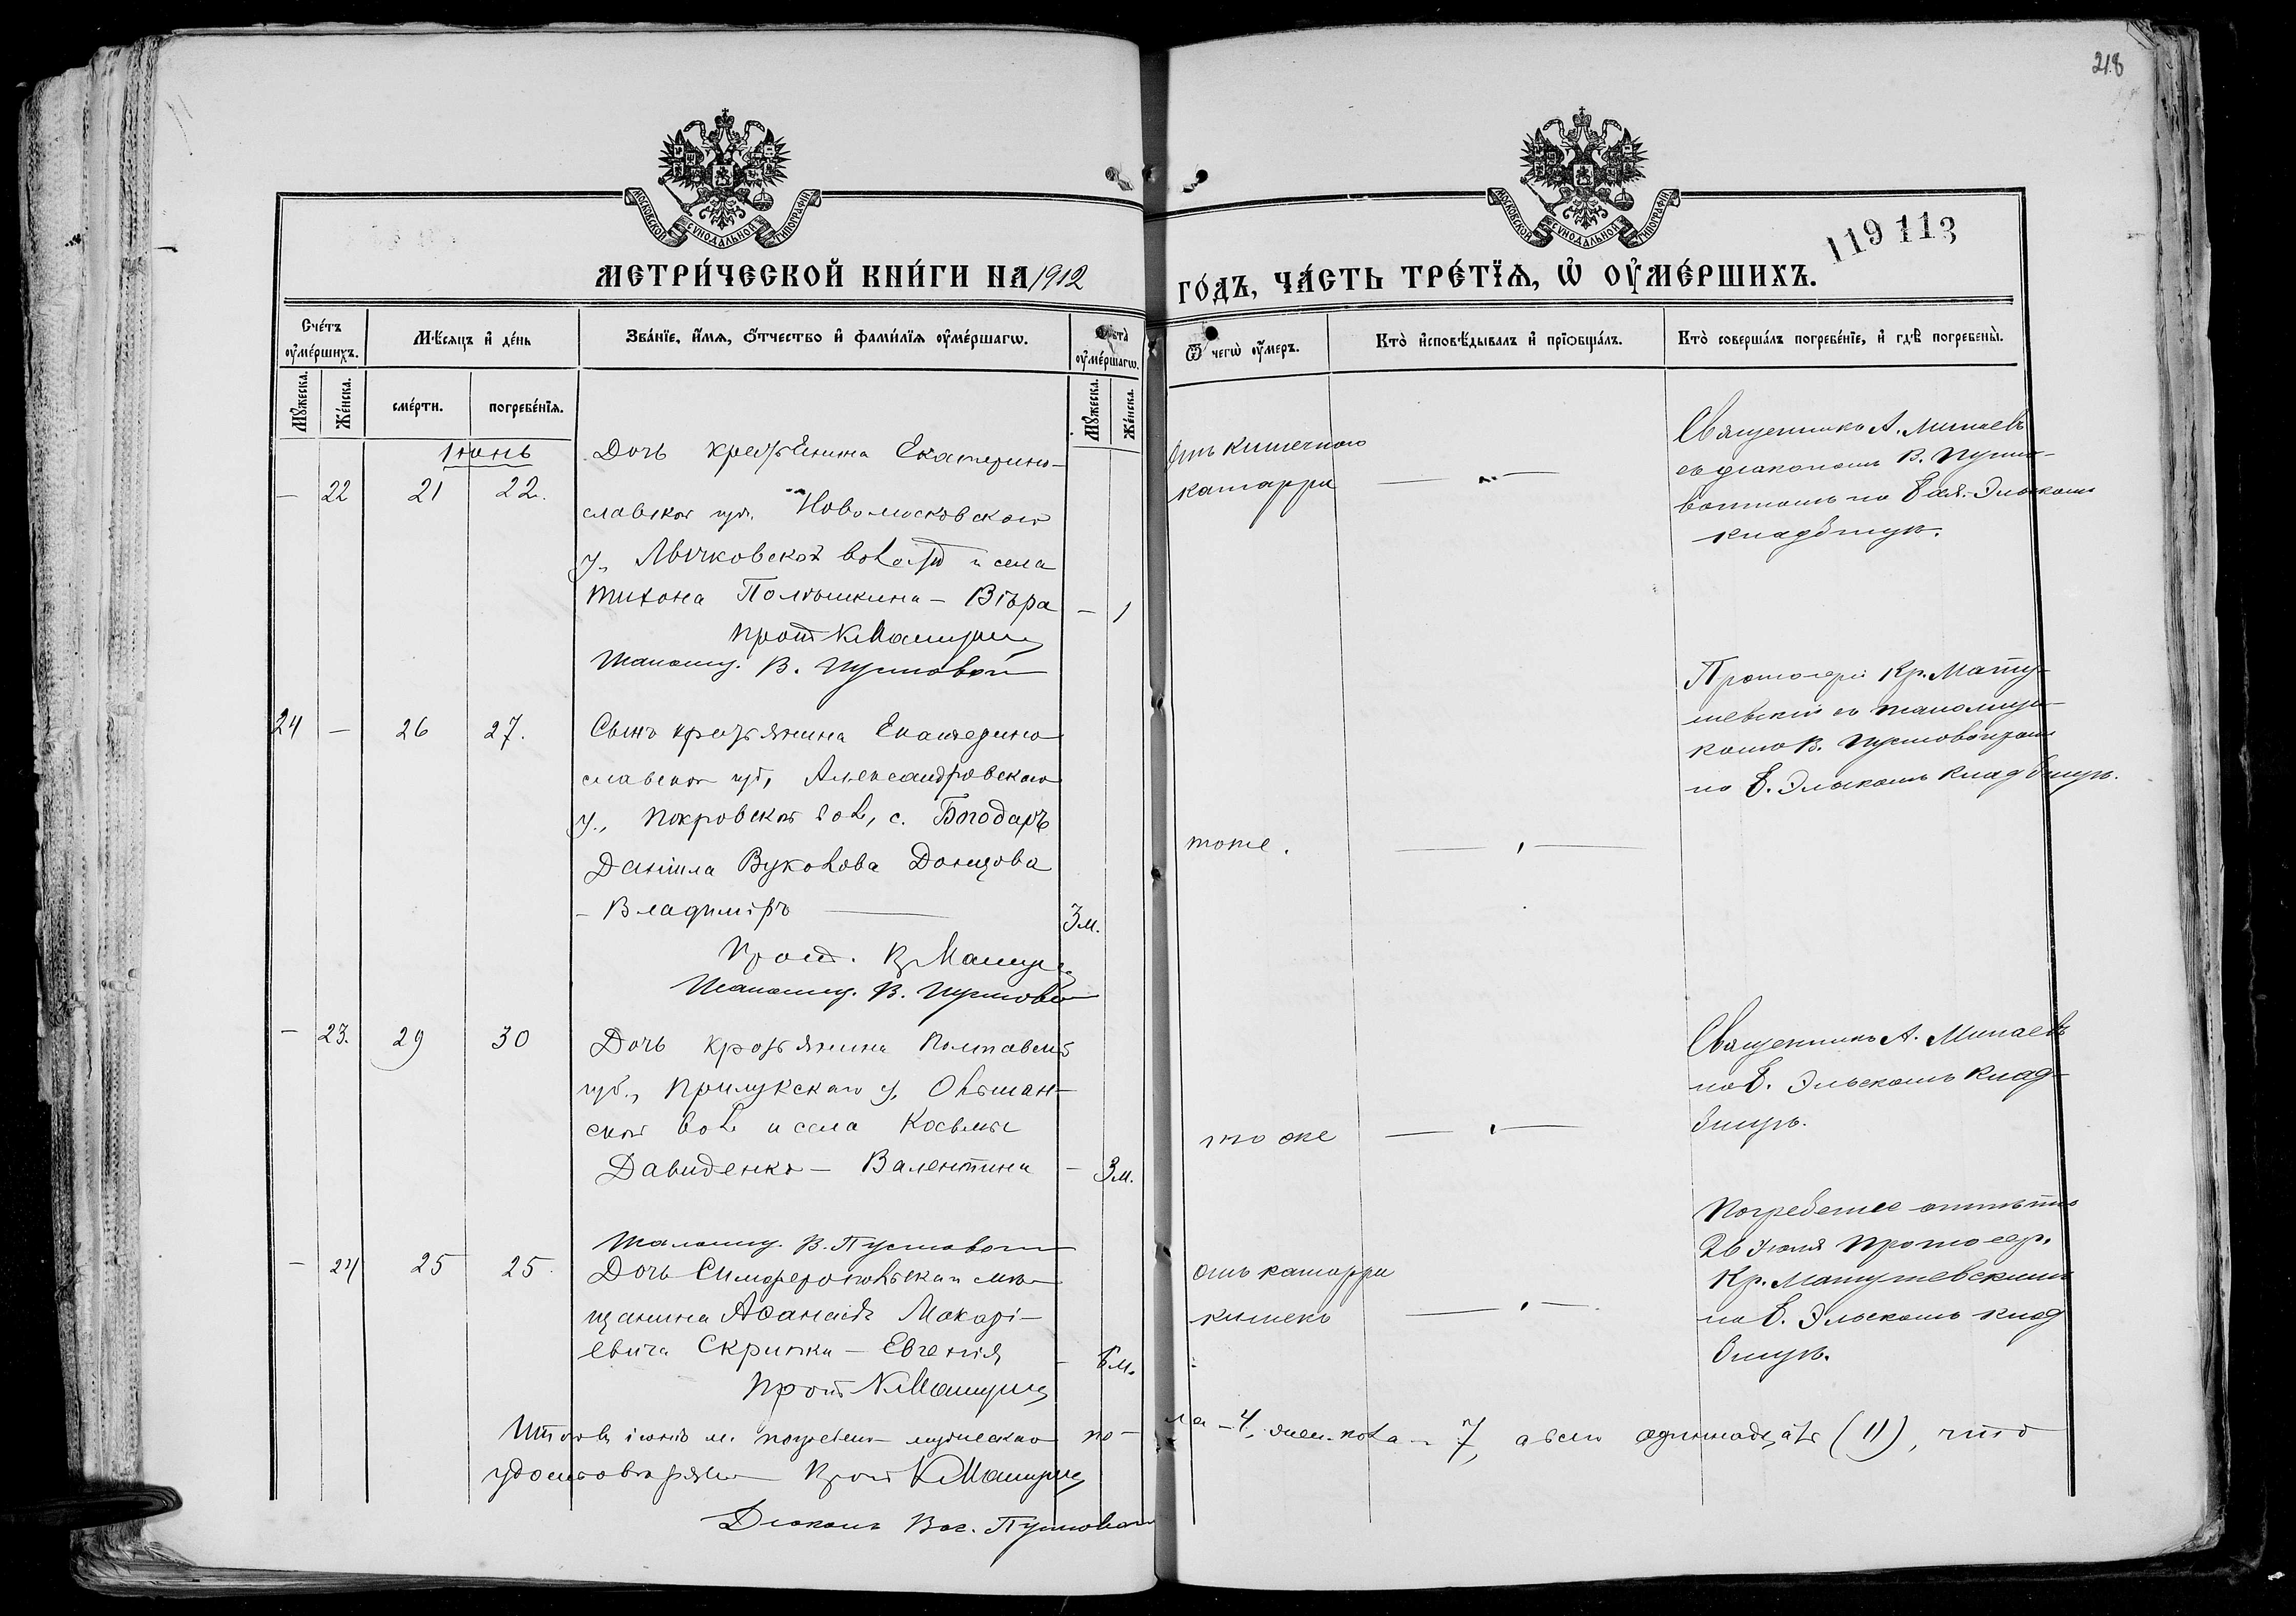 218
МОСКОВСКОЙ СѴНОДАЛЬНОЙ ТИПОГРАФІИ
МОСКОВСКОЙ СѴНОДАЛЬНОЙ ТИПОГРАФІИ
119 113
МЕТРИ́ЧЕСКОЙ КНИ́ГИ НА 1912
ГО́ДЪ, ЧА́СТЬ ТРЕ́ТЇѦ, Ѡ҆ ОУ҆МЕ́РШИХЪ.
Сче́тъ оу҆ме́ршихъ.
Мѣ́сяцъ и҆ де́нь
Зва́нїе, и҆́мя, ѻ҆́тчество и҆ фами́лїя оу҆ме́ршагѡ.
Лѣта̀ оу҆ме́ршагѡ.
Ѿ чегѡ̀ оу҆́меръ.
Кто̀ и҆сповѣ́дывалъ и҆ прїѻбща́лъ.
Кто̀ соверша́лъ погребе́нїе, и҆ гдѣ̀ погребены̀.
Мꙋ́жеска.
Же́нска.
сме́рти.
погребе́нїя.
Мꙋ́жеска.
Же́нска.
Іюнь
— 22 21 22.
Дочь крестьянина Екатерино-
славской губ. Новомосковскаго
у., Лычковской волости и села
Тихона Полтышкина — Вѣра — 1
Прот К Матуш
Псаломщ. В. Пустовой
Отъ кишечнаго
катарра
Священникъ А. Минаевъ
съ діакономъ В. Пусто-
войтомъ на Эльскомъ
кладбищѣ.
24 — 26 27.
Сынъ крестьянина Екатерино
славской губ, Александровскаго
у., Покровской вол, с. Богодаръ
Даніила Вуколова Донцова
— Владиміръ — 3 м.
Прот. К Матуш
Псаломщ. В. Пустовой
тоже.
Протоіерей Кр. Мату-
шевскій съ псаломщи-
комъ В. Пустовойтомъ
на Б. Эльскомъ кладбищѣ.
— 23. 29 30
Дочь крестьянина Полтавской
губ., Прилукскаго у, Ольшан-
ской вол и села Косьмы
Давиденко — Валентина — 3 м.
Псаломщ. В. Пустовой
то же
Священникъ А. Минаевъ
на Б. Эльскомъ клад-
бищѣ.
— 24 25 25.
Дочь Симферопольскаго мѣ-
щанина Аѳанасія Макарі-
евича Скрипки — Евгенія — 6 м.
Прот К Матуш
отъ катарра
кишекъ
Погребеніе отпѣто
26 Іюня Протоіер.
Кр. Матушевскимъ
на Б. Эльскомъ клад
бищѣ.
Итого въ іюнѣ м. погребено мужескаго по-
ла — 4, женск. пола — 7, а всего одиннадцать (11), что
удостовѣряемъ Прот К Матуш
Діаконъ Вас. Пустовойт